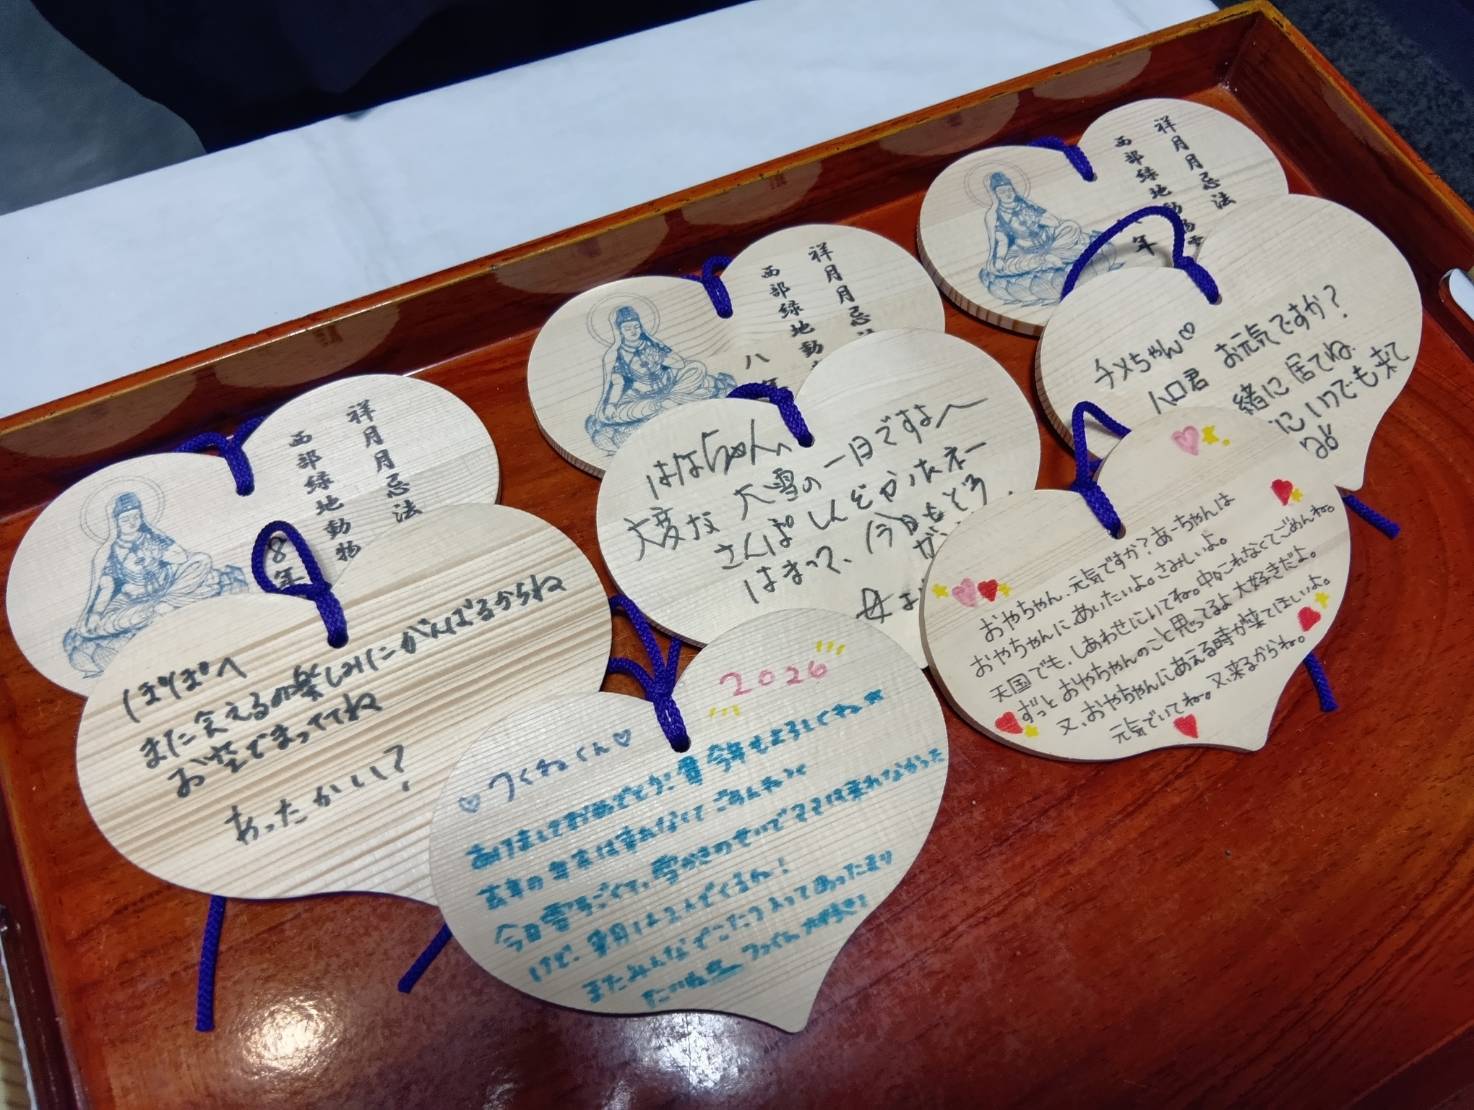 祥月月忌法
西部緑地動物
8年
祥月月忌
西部緑地動
八年
祥月月忌法
西部緑地動物
年
ぽぽへ
また会えるの楽しみにがんばるからね
お空でまっててね
あったかい?
はなちゃんへ
大変な 大雪の一日ですよ〜
さんぽ しんどかったネー
はまって、今日もどろ
母
チメちゃん♡
ハロ君 お元気ですか?
緒に居てね
にいつでも来て
ね
おやちゃん、元気ですか?あーちゃんは
おやちゃんにあいたいよ。さみしいよ。
天国でも、しあわせにいてね。中々これなくてごめんね。
ずっとおやちゃんのこと思ってるよ大好きだよ。
又、おやちゃんにあえる時が来てほしいよ。
元気でいてね。又、来るからね。
2026
♡つくねくん♡
あけましておめでとう! 今年もよろしくね★
去年の年末は来れなくてごめんね
今日雪すごくて、雪かきのせいでママは来れなかった
けど、来月しんこんでくるん!
またみんなでこたつ入ってあったまり
たいねぇ つっくん 大好き!